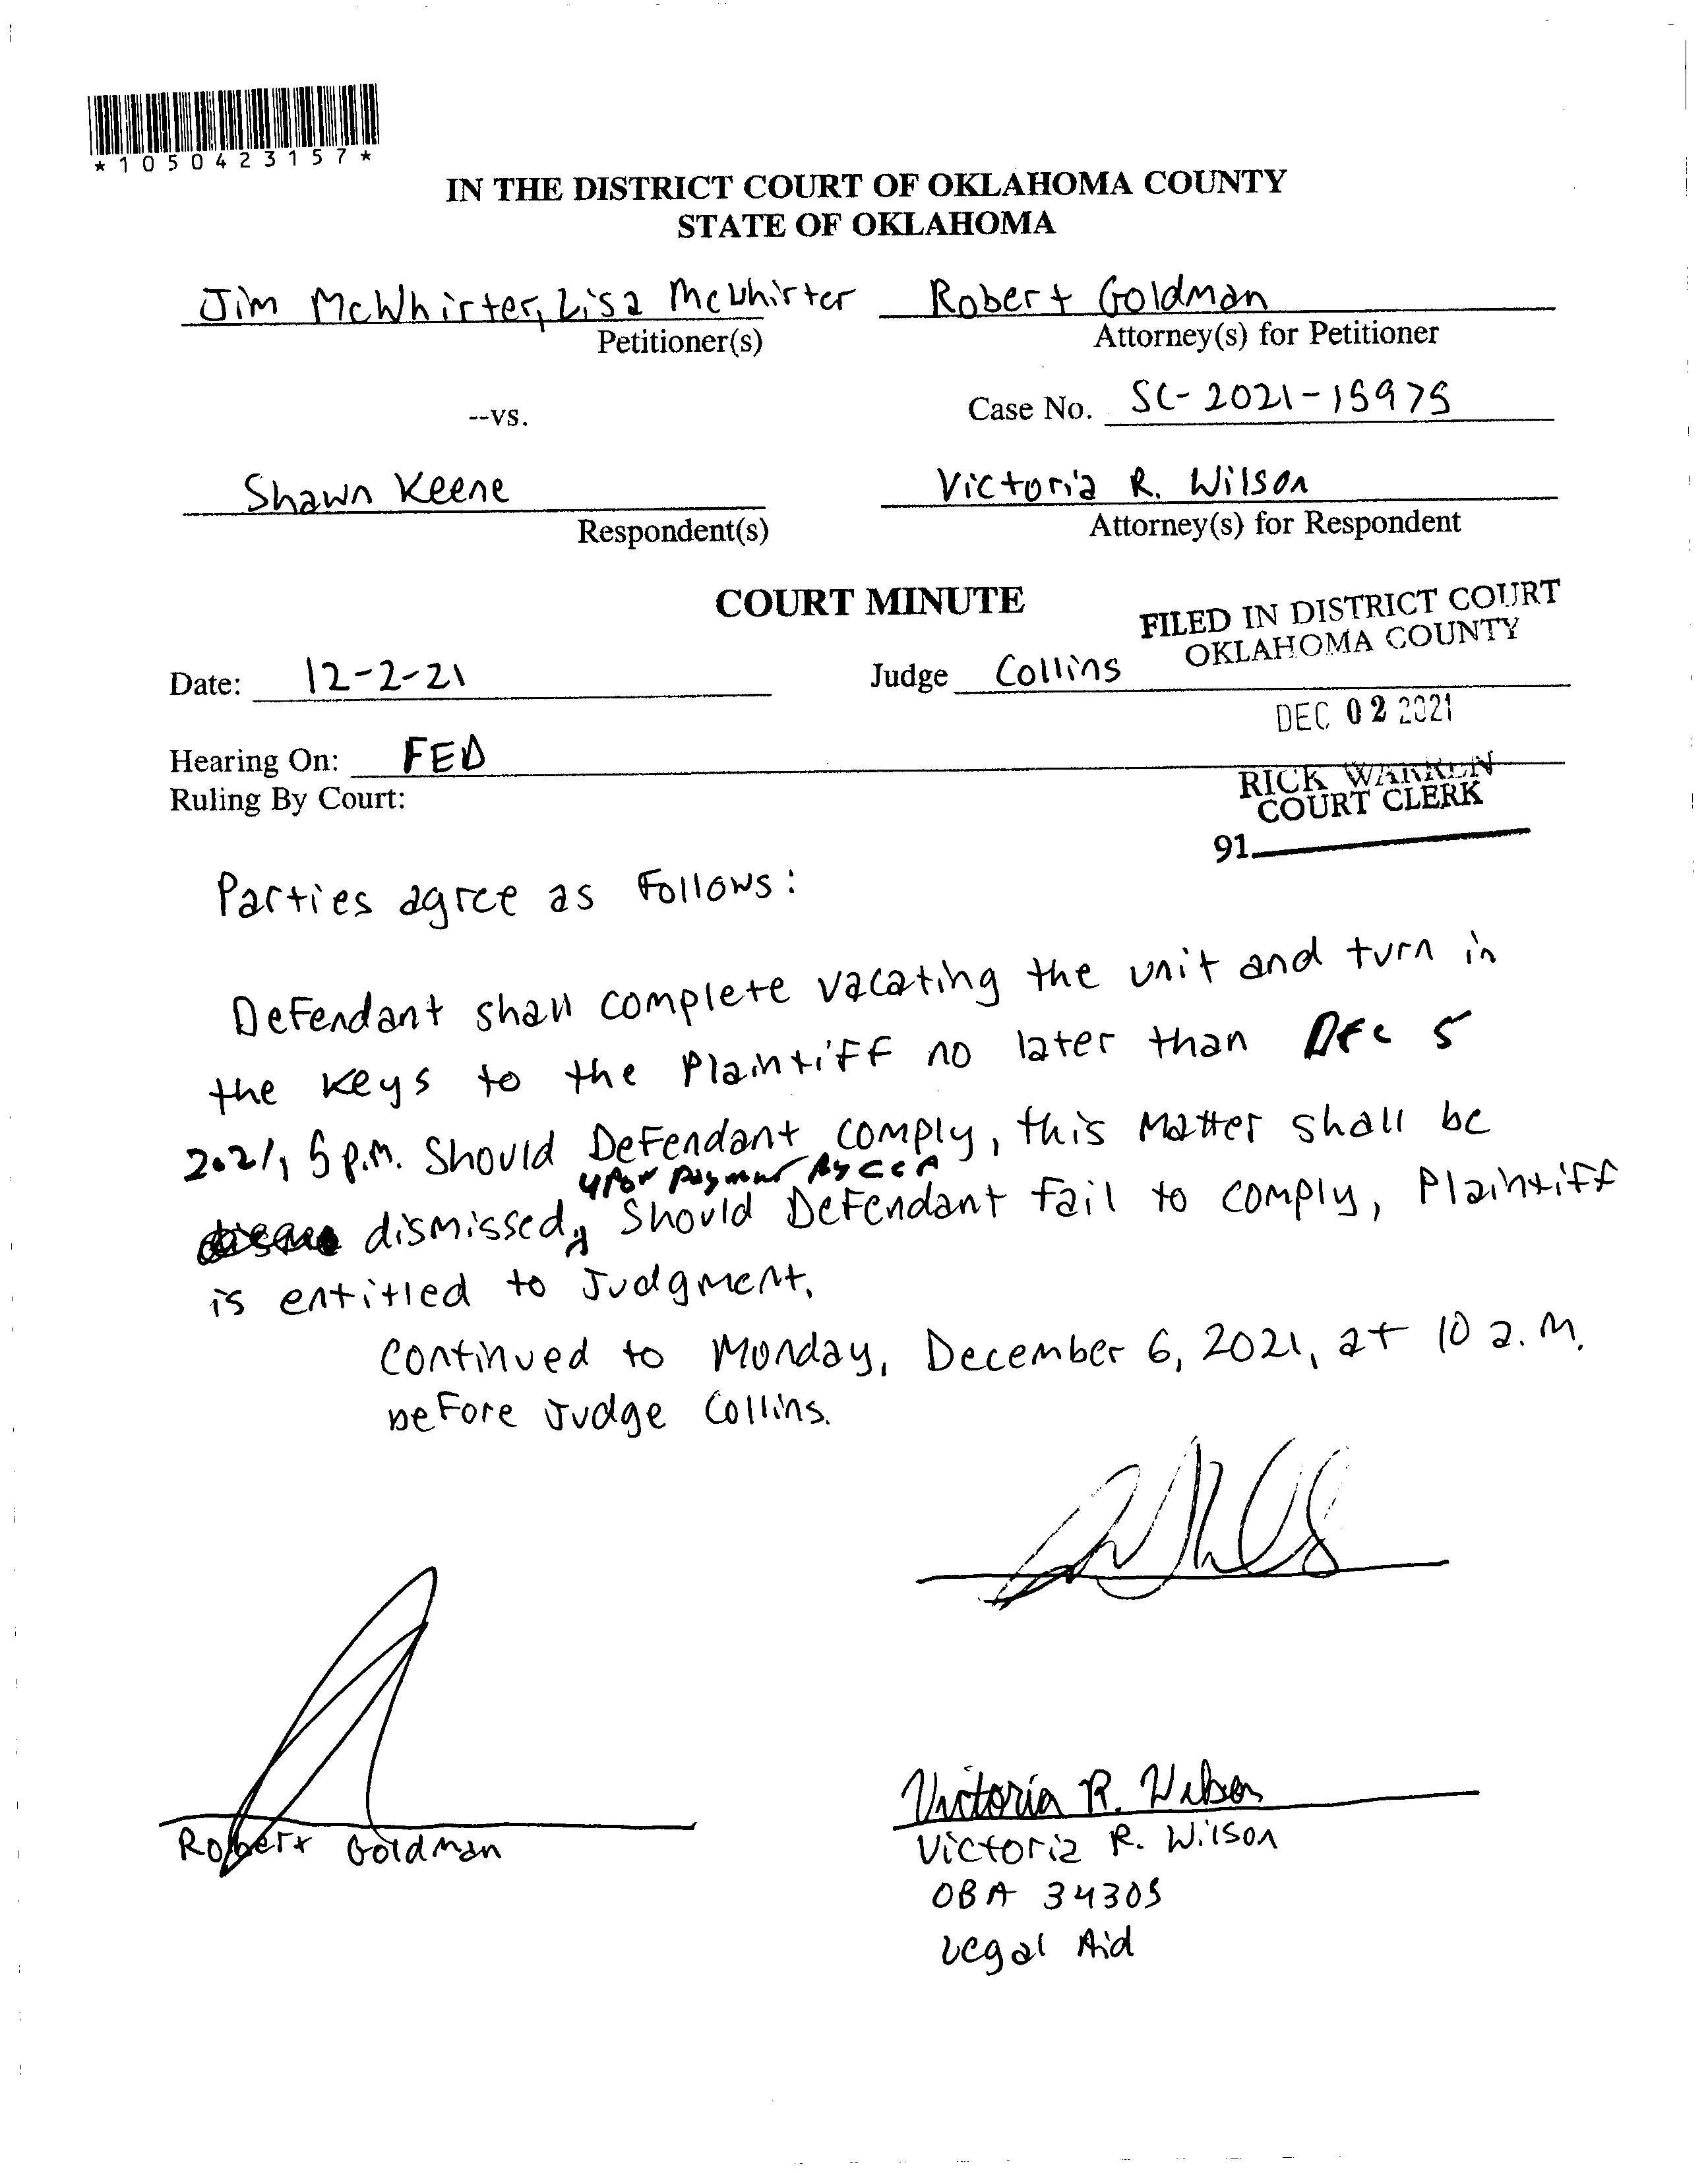 *1050423157*
IN THE DISTRICT COURT OF OKLAHOMA COUNTY
STATE OF OKLAHOMA
Jim McWhirter, Lisa McWhirter Robert Goldman
Petitioner(s) Attorney(s) for Petitioner
--vs. Case No. SC-2021-15975
Shawn Keene Victoria R. Wilson
Respondent(s) Attorney(s) for Respondent
COURT MINUTE
FILED IN DISTRICT COURT
OKLAHOMA COUNTY
Date: 12-2-21 Judge Collins
DEC 02 2021
Hearing On: FED
RICK WARREN
Ruling By Court:
COURT CLERK
91
Parties agree as Follows:
Defendant shall complete vacating the unit and turn in
the keys to the Plaintiff no later than Dec 5
2021, 5 p.m. Should Defendant comply, this Matter shall be
upon payment by CCA
dismissed, Should Defendant fail to comply, Plaintiff
is entitled to Judgment.
Continued to Monday, December 6, 2021, at 10 a.m.
before Judge Collins.
Robert Goldman
Victoria R. Wilson
Victoria R. Wilson
OBA 34305
Legal Aid